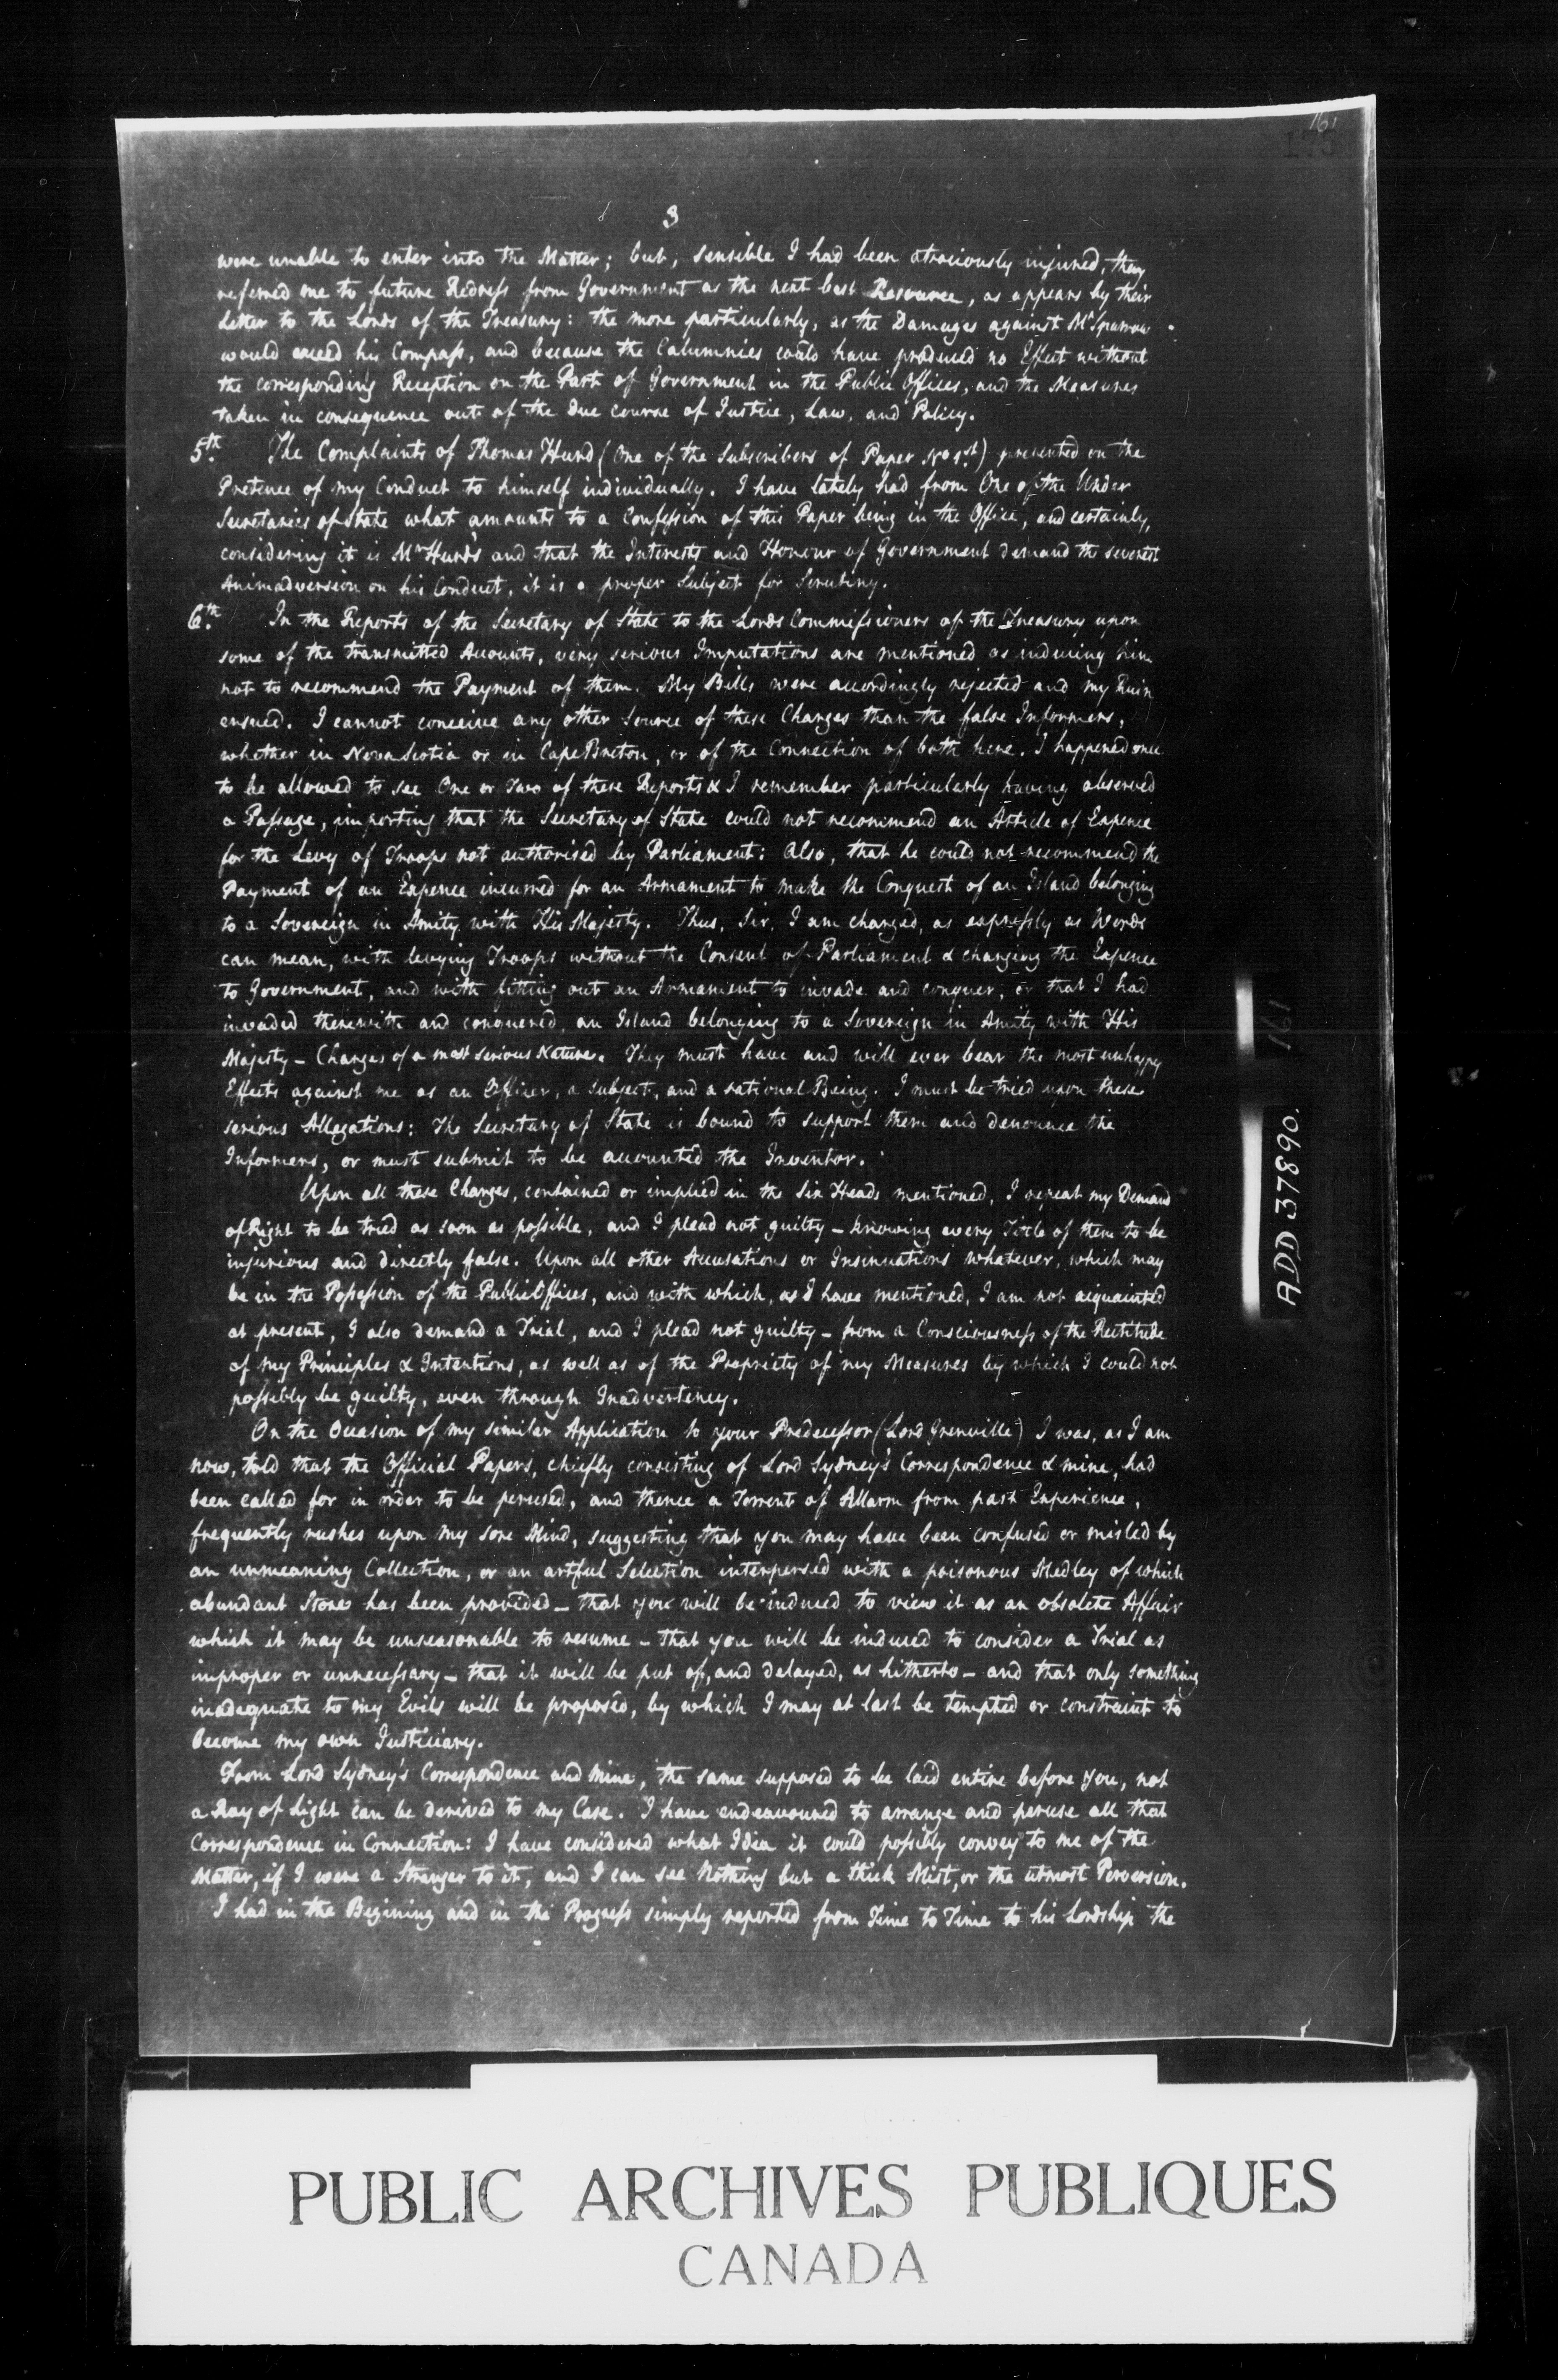 161
175
3
were unable to enter into the Matter; but, sensible I had been atrociously injured, they
referred me to future Redress from Government as the next best Resource, as appears by their
Letter to the Lords of the Treasury: the more particularly, as the Damages against Mr. Sparrow
would exceed his Compass, and because the Calumnies could have produced no Effect without
the corresponding Reception on the Part of Government in the Public Offices, and the Measures
taken in consequence out of the due course of Justice, Law, and Policy.
5th. The Complaints of Thomas Hurd (One of the Subscribers of Paper No 1st) presented on the
Pretence of my Conduct to himself individually. I have lately had from One of the Under
Secretaries of State what amounts to a Confession of this Paper being in the Office, and certainly,
considering it is Mr Hurd's and that the Interests and Honour of Government demand the severest
Animadversion on his Conduct, it is a proper Subject for Scrutiny.
6th. In the Reports of the Secretary of State to the Lords Commissioners of the Treasury upon
some of the transmitted Accounts, very serious Imputations are mentioned as inducing him
not to recommend the Payment of them. My Bills were accordingly rejected and my Ruin
ensued. I cannot conceive any other Source of these Charges than the false Informers,
whether in Nova Scotia or in Cape Breton, or of the Connection of both here. I happened once
to be allowed to see One or Two of these Reports & I remember particularly having observed
a Passage, importing that the Secretary of State could not recommend an Article of Expence
for the Levy of Troops not authorised by Parliament: Also, that he could not recommend the
Payment of an Expence incurred for an Armament to make the Conquest of an Island belonging
to a Sovereign in Amity with His Majesty. Thus, Sir, I am charged, as expressly as Words
can mean, with levying Troops without the Consent of Parliament & charging the Expence
to Government, and with fitting out an Armament to invade and conquer, or that I had
invaded therewith and conquered, an Island belonging to a Sovereign in Amity with His
Majesty - Charges of a most serious Nature. They must have and will ever bear the most unhappy
Effects against me as an Officer, a Subject, and a rational Being. I must be tried upon these
serious Allegations: The Secretary of State is bound to support them and denounce the
Informers, or must submit to be accounted the Inventor.
Upon all these Charges, contained or implied in the Six Heads mentioned, I repeat my Demand
of Right to be tried as soon as possible, and I plead not guilty - knowing every Title of them to be
injurious and directly false. Upon all other Accusations or Insinuations whatever, which may
be in the Possession of the Public Offices, and with which, as I have mentioned, I am not acquainted
at present, I also demand a Trial, and I plead not guilty - from a Consciousness of the Rectitude
of my Principles & Intentions, as well as of the Propriety of my Measures by which I could not
possibly be guilty, even through Inadvertency.
On the Occasion of my similar Application to your Predecessor (Lord Grenville) I was, as I am
now, told that the Official Papers, chiefly consisting of Lord Sydney's Correspondence & mine, had
been called for in order to be perused, and thence a Torrent of Allarm from past Experience,
frequently rushes upon my sore Mind, suggesting that you may have been confused or misled by
an unmeaning Collection, or an artful Selection interspersed with a poisonous Medley of which
abundant Store has been provided - that you will be induced to view it as an obsolete Affair
which it may be unseasonable to resume - that you will be induced to consider a Trial as
improper or unnecessary - that it will be put off, and delayed, as hitherto - and that only something
inadequate to my Evils will be proposed, by which I may at last be tempted or constraint to
become my own Justiciary.
From Lord Sydney's Correspondence and mine, the same supposed to be laid entire before you, not
a Ray of Light can be derived to my Case. I have endeavoured to arrange and peruse all that
Correspondence in Connection: I have considered what Idea it could possibly convey to me of the
Matter, if I were a Stranger to it, and I can see Nothing but a thick Mist, or the utmost Perversion.
I had in the Begining and in the Progress simply reported from Time to Time to his Lordship the
161
ADD 37890.
PUBLIC ARCHIVES PUBLIQUES
CANADA